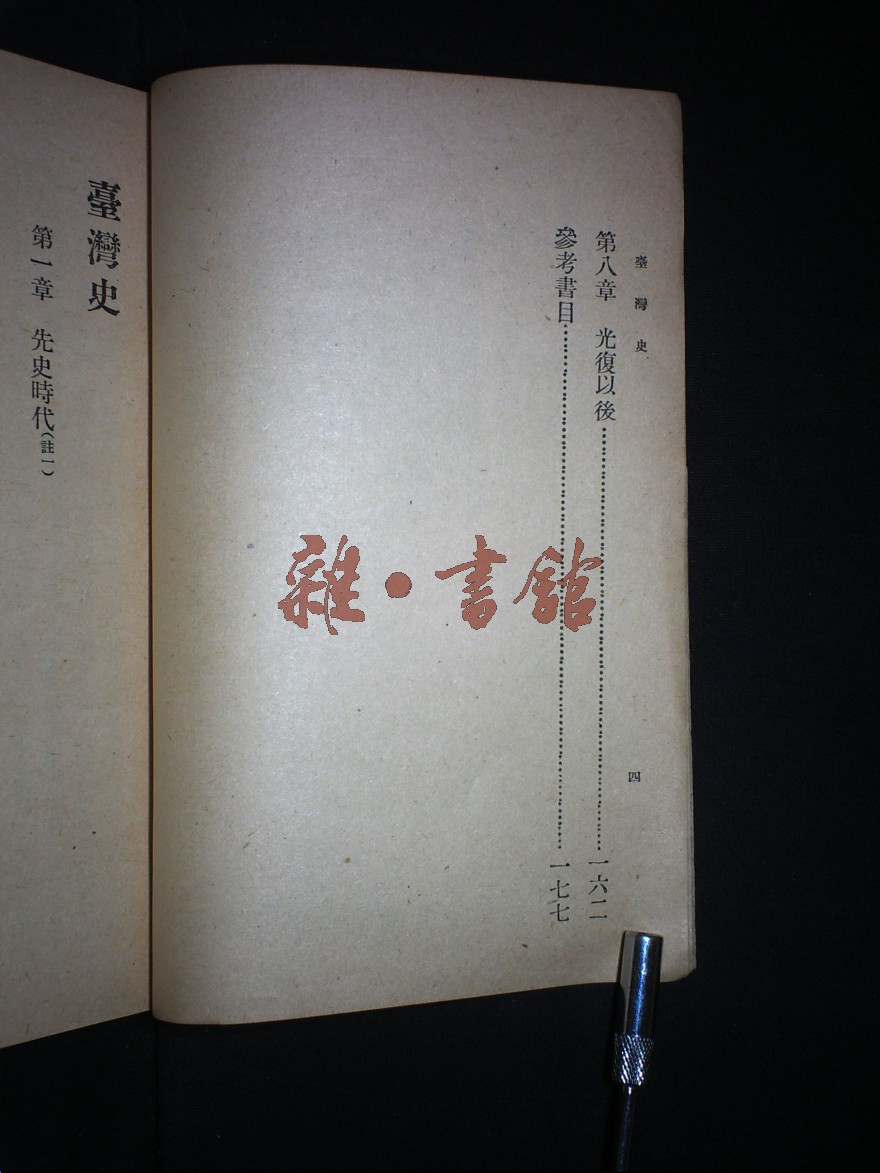 臺灣史
四
第八章 光復以後……一六二
參考書目……一七七
臺灣史
第一章 先史時代(註一)
雜·書館